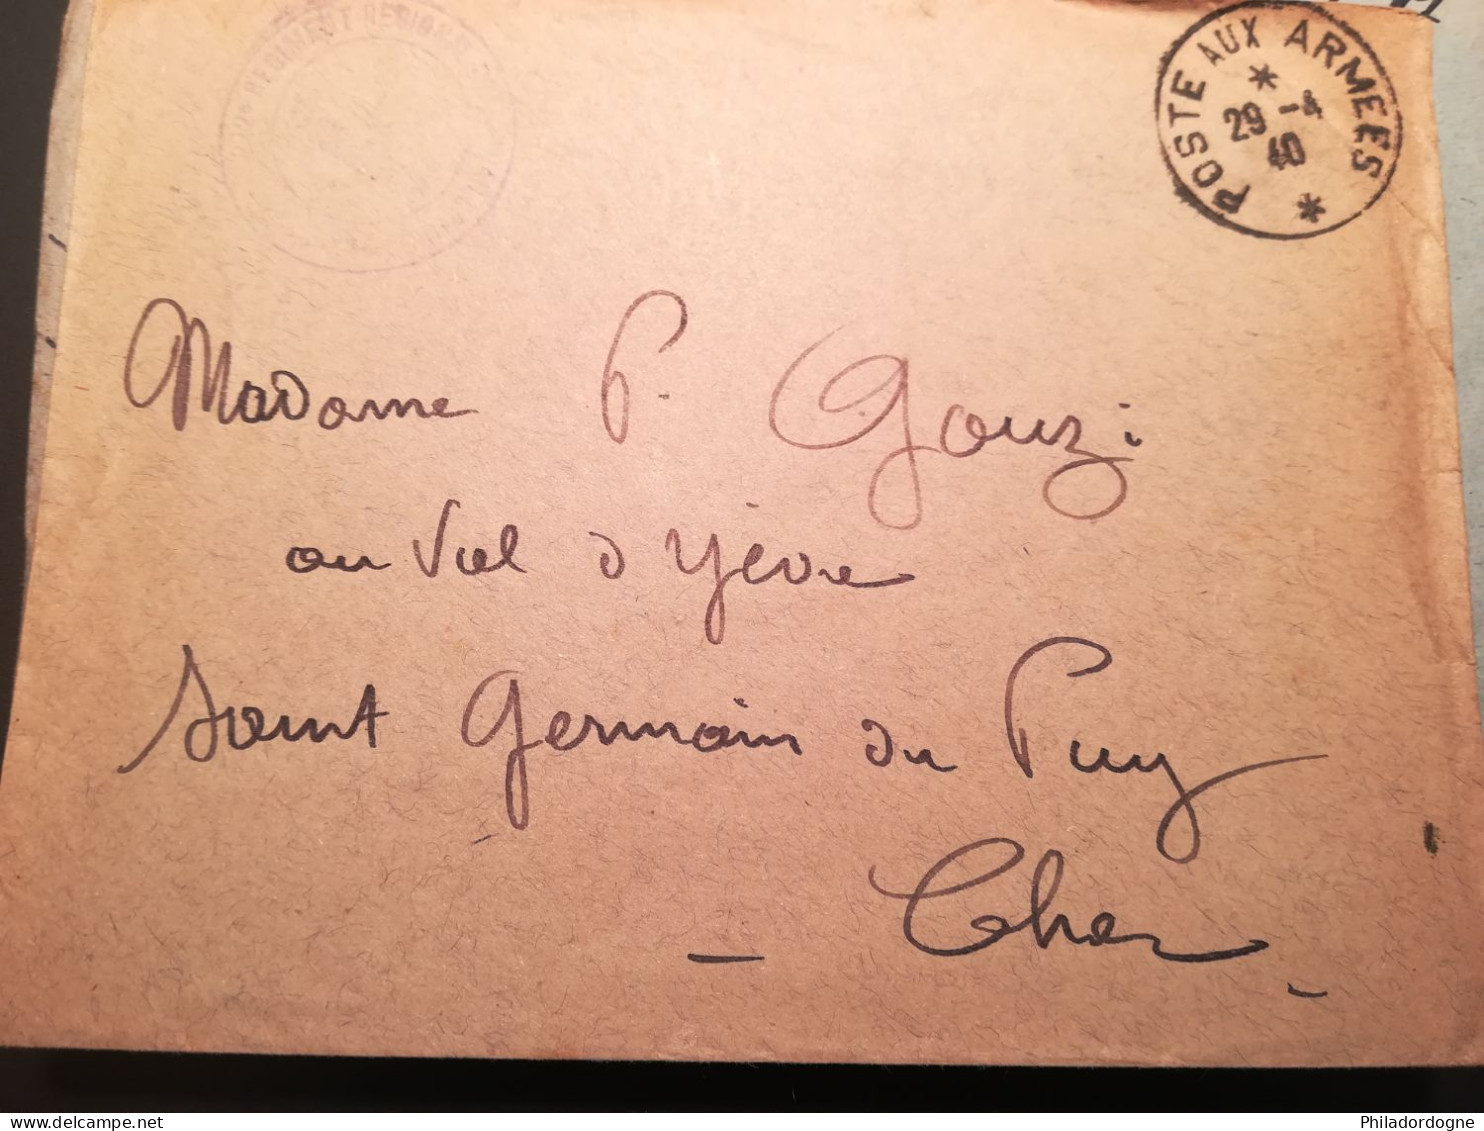 REGIMENT REGIONAL
POSTE AUX ARMEES
29 -4
40
Madame P. Gouzi
au Val d'Yèvre
Saint Germain du Puy
Cher
Philadordogne